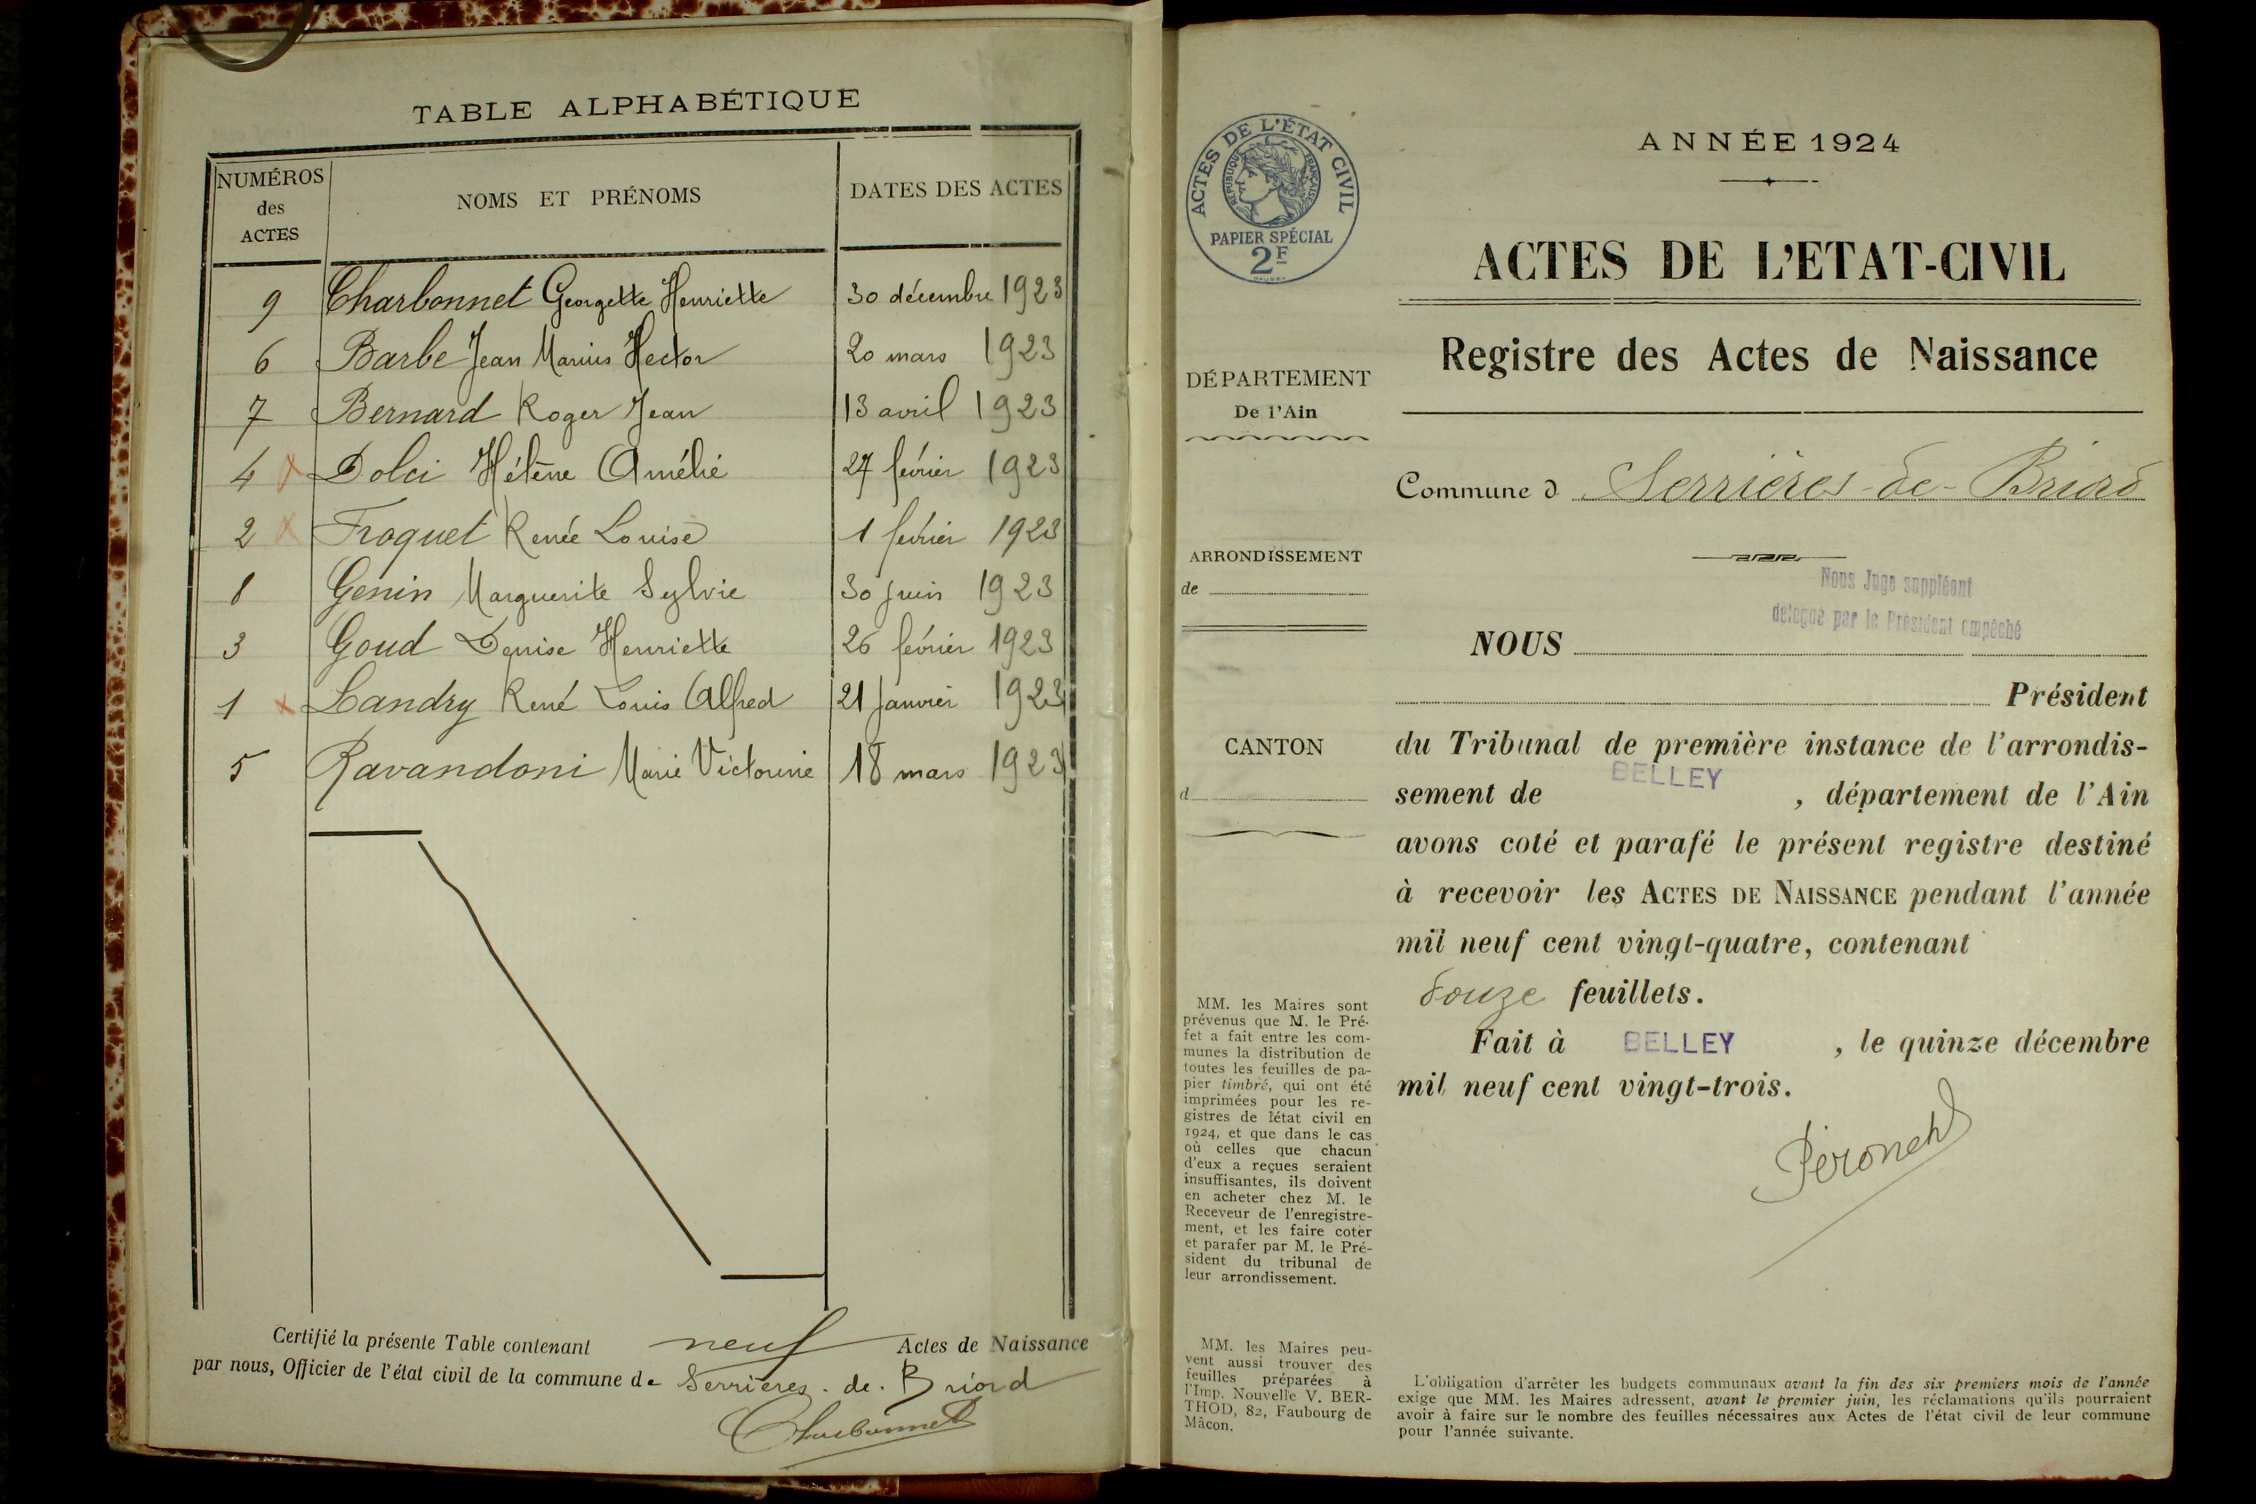 TABLE ALPHABÉTIQUE
NUMÉROS des ACTES NOMS ET PRÉNOMS DATES DES ACTES
9 Charbonnet Georgette Henriette 30 décembre 1923
6 Barbe Jean Marius Hector 20 mars 1923
7 Bernard Roger Jean 13 avril 1923
4 x Dolci Hélène Amélie 27 février 1923
2 x Froquet Renée Louise 1 février 1923
8 Genin Marguerite Sylvie 30 juin 1923
3 Goud Denise Henriette 26 février 1923
1 x Landry René Louis Alfred 21 Janvier 1923
5 Ravandoni Marie Victorine 18 mars 1923
Certifié la présente Table contenant neuf Actes de Naissance
par nous, Officier de l'état civil de la commune de Serrières-de-Briord
Charbonnet
ACTES DE L'ÉTAT CIVIL
RÉPUBLIQUE FRANÇAISE
PAPIER SPÉCIAL
2F
DÉPARTEMENT
De l'Ain
ARRONDISSEMENT
de
CANTON
d
MM. les Maires sont
prévenus que M. le Pré-
fet a fait entre les com-
munes la distribution de
toutes les feuilles de pa-
pier timbré, qui ont été
imprimées pour les re-
gistres de l'état civil en
1924, et que dans le cas
où celles que chacun
d'eux a reçues seraient
insuffisantes, ils doivent
en acheter chez M. le
Receveur de l'enregistre-
ment, et les faire coter
et parafer par M. le Pré-
sident du tribunal de
leur arrondissement.
MM. les Maires peu-
vent aussi trouver des
feuilles préparées à
l'Imp. Nouvelle V. BER-
THOD, 82, Faubourg de
Mâcon.
ANNÉE 1924
ACTES DE L'ETAT-CIVIL
Registre des Actes de Naissance
Commune d Serrières-de-Briord
Nous Juge suppléant
délégué par le Président empêché
NOUS
Président
du Tribunal de première instance de l'arrondis-
sement de BELLEY, département de l'Ain
avons coté et parafé le présent registre destiné
à recevoir les ACTES DE NAISSANCE pendant l'année
mil neuf cent vingt-quatre, contenant
douze feuillets.
Fait à BELLEY, le quinze décembre
mil neuf cent vingt-trois.
L'obligation d'arrêter les budgets communaux avant la fin des six premiers mois de l'année
exige que MM. les Maires adressent, avant le premier juin, les réclamations qu'ils pourraient
avoir à faire sur le nombre des feuilles nécessaires aux Actes de l'état civil de leur commune
pour l'année suivante.